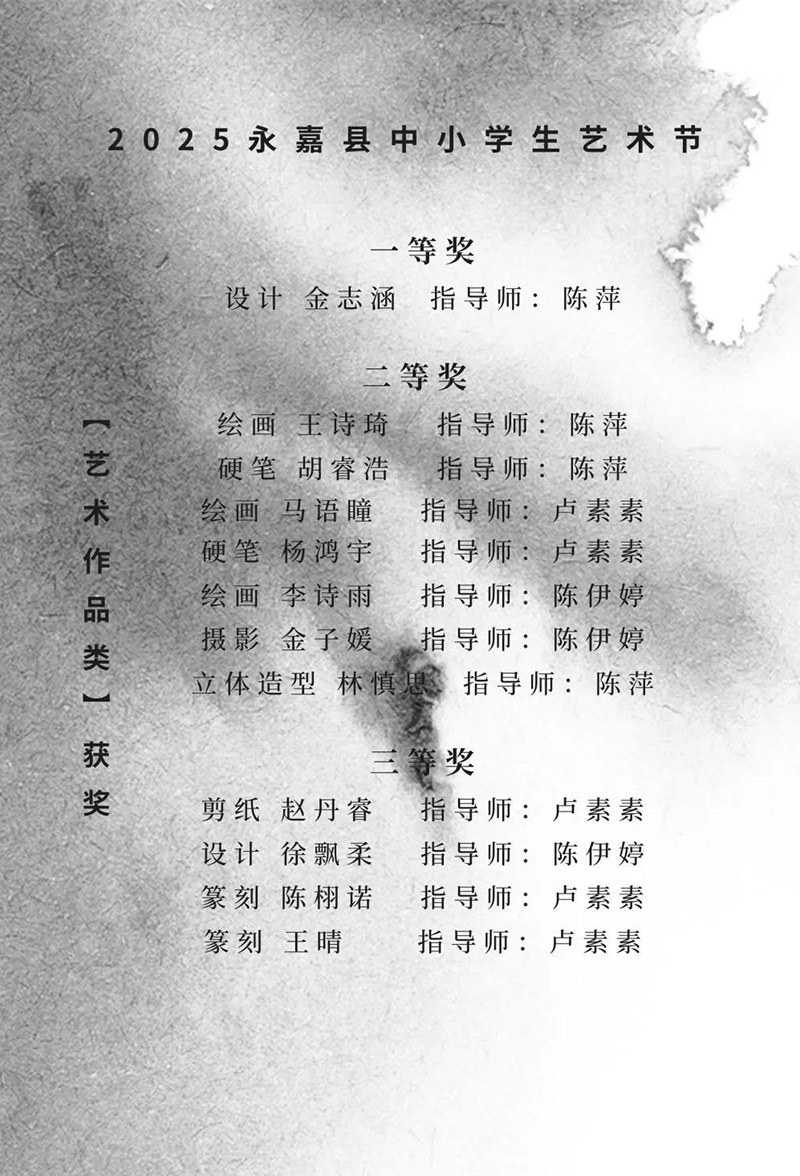 2025永嘉县中小学生艺术节
【艺术作品类】获奖
一等奖
设计 金志涵 指导师：陈萍
二等奖
绘画 王诗琦 指导师：陈萍
硬笔 胡睿浩 指导师：陈萍
绘画 马语瞳 指导师：卢素素
硬笔 杨鸿宇 指导师：卢素素
绘画 李诗雨 指导师：陈伊婷
摄影 金子媛 指导师：陈伊婷
立体造型 林慎思 指导师：陈萍
三等奖
剪纸 赵丹睿 指导师：卢素素
设计 徐飘柔 指导师：陈伊婷
篆刻 陈栩诺 指导师：卢素素
篆刻 王晴 指导师：卢素素